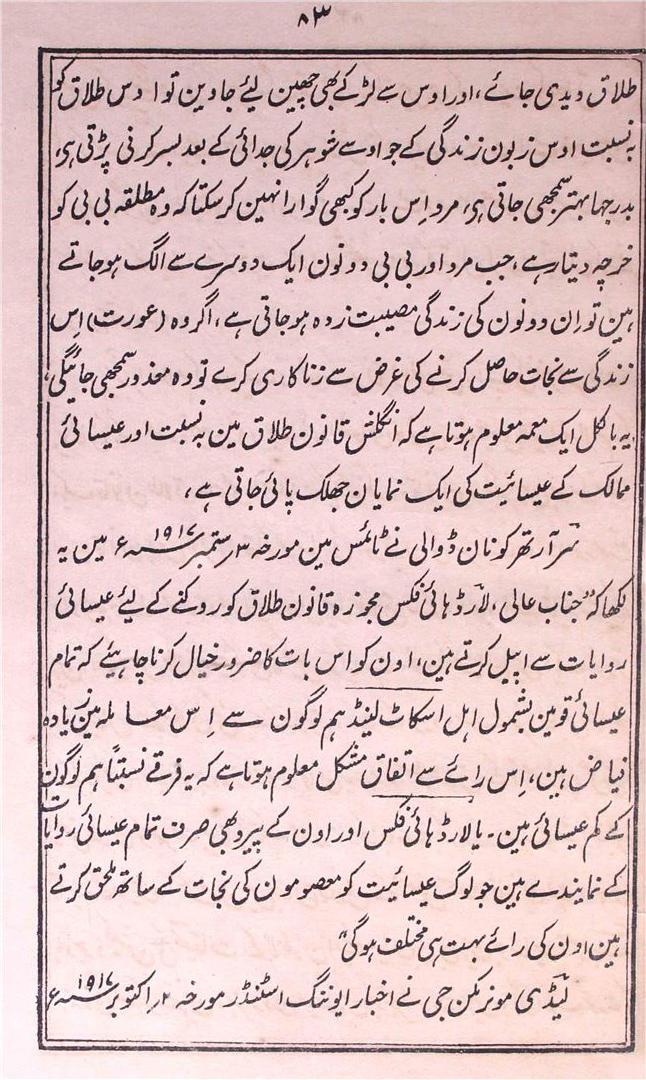 ۸۳
طلاق دیدی جائے، اور اوس سے لڑکے بھی چھین لیئے جاوین تو اوس طلاق کو
بہ نسبت اوس زبون زندگی کے جو اوسے شوہر کی جدائی کے بعد بسر کرنی پڑتی ہی،
بدرجہا بہتر سمجھی جاتی ہی، مرد اِس بار کو کبھی گوارا نہین کرسکتا کہ وہ مطلقہ بی بی کو
خرچہ دیتا رہے، جب مرد اور بی بی دونون ایک دوسرے سے الگ ہو جاتے
ہین تو اِن دونون کی زندگی مصیبت زدہ ہو جاتی ہے، اگر وہ (عورت) اِس
زندگی سے نجات حاصل کرنے کی غرض سے زنا کاری کرے تو وہ معذور سمجھی جائیگی،
یہ بالکل ایک معمہ معلوم ہوتا ہے کہ انگلش قانون طلاق مین بہ نسبت اور عیسائی
ممالک کے عیسائیت کی ایک نمایان جھلک پائی جاتی ہے،
سَر آرتھر کونان ڈوالی نے ٹائمس مین مورخہ ۳ر ستمبر ۱۹۱۷ء مین یہ
لکھا کہ "جناب عالی، لارڈ ہائی فکس مجوزہ قانون طلاق کو روکنے کے لیئے عیسائی
روایات سے اپیل کرتے ہین، اون کو اس بات کا ضرور خیال کرنا چاہیئے کہ تمام
عیسائی قومین بشمول اہل اسکاٹ لینڈ ہم لوگون سے اِس معاملہ مین زیادہ
فیاض ہین، اِس رائے سے اتفاق مشکل معلوم ہوتا ہے کہ یہ فرقے نسبتاً ہم لوگون
کے کم عیسائی ہین۔ یا لارڈ ہائی فکس اور اون کے پیرو بھی صرف تمام عیسائی روایات
کے نمایندے ہین جو لوگ عیسائیت کو معصومون کی نجات کے ساتھ ملحق کرتے
ہین اون کی رائے بہت ہی مختلف ہوگی"
لیڈی مونز مکن جی نے اخبار ایوننگ اسٹنڈر مورخہ ۲ر اکتوبر ۱۹۱۷ء